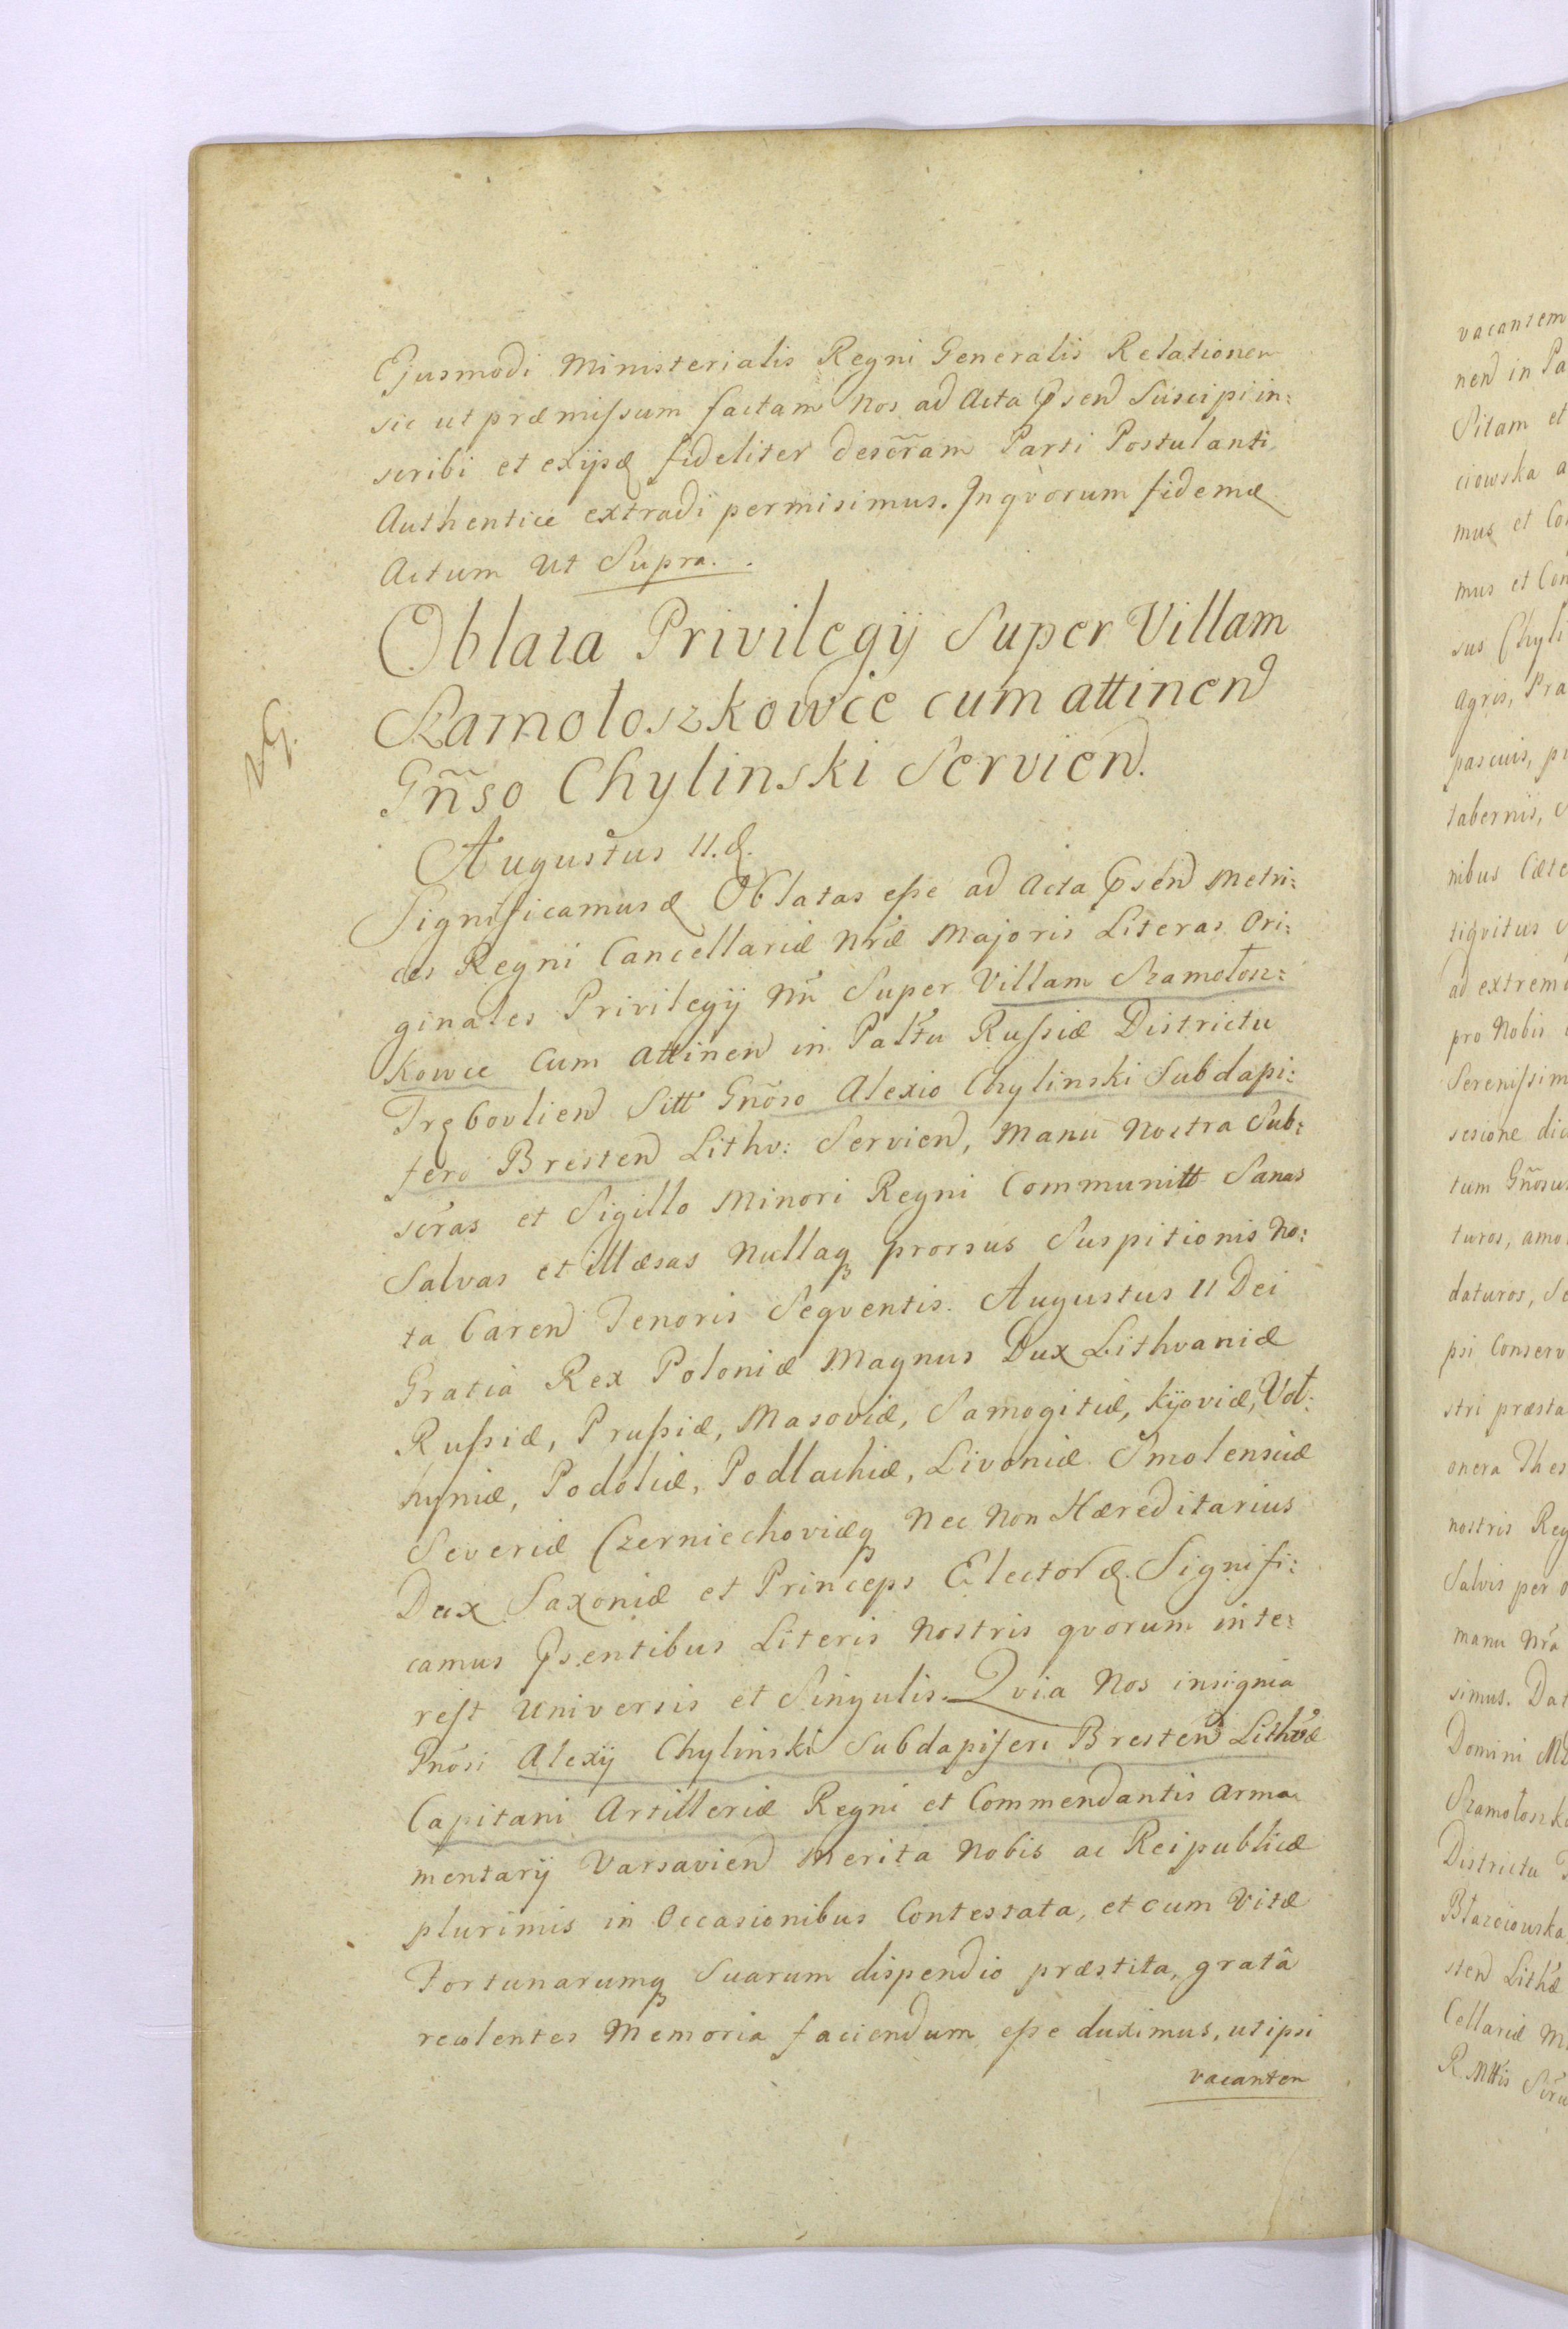 Ejusmodi Ministerialis Regni Generalis Relationem
sic ut præmissum factam Nos ad Acta Psend Suscipi in:
scribi et exijsq fideliter descr̃am Parti Postulanti
Authentice extradi permisimus. In qvorum fidem &
Actum ut Supra.
Oblata Privilegij Super Villam
Szamotoszkowce cum attinen
Gñso Chylinski Servien.
Augustus II. &.
Significamus & Oblatas esse ad Acta Psend Metri:
ces Regni Cancellariæ Nræ Majoris Literas Ori:
ginales Privilegij Nri Super Villam Szamotosz:
kowce Cum Attinen in Palttu Russiæ Districtu
Trębovlien Sitt Gñoso Alexio Chylinski Subdapi:
fero Bresten Lithv: Servien, Manu Nostra Sub:
scr̃as et Sigillo Minori Regni Communitt Sanas
Salvas et illæsas Nullaq prorsus Suspitionis No:
ta Caren Tenoris Seqventis. Augustus II Dei
Gratia Rex Poloniæ Magnus Dux Lithvaniæ
Russiæ, Prussiæ, Masoviæ, Samogitiæ, Kijoviæ, Vol:
hyniæ, Podoliæ, Podlachiæ, Livoniæ Smolensciæ
Severiæ Czerniechoviæq Nec Non Hæreditarius
Dux Saxoniæ et Princeps Elector &. Signifi:
camus Psentibus Literis Nostris qvorum inte:
rest Universis et Singulis. Qvia Nos insignia
Gñosi Alexij Chylinski Subdapiferi Bresten Lithvæ
Capitani Artilleriæ Regni et Commendantis Arma
mentarij Varsavien Merita Nobis ac Reipublicæ
plurimis in Occasionibus Contestata, et cum Vitæ
Fortunarumq Suarum dispendio præstita, gratâ
recolentes Memoria faciendum esse duximus, ut ipsi
vacantem
vacantem
nend in Pa
Sitam et
ciowska a
mus et Co
mus et Con
sus Chyli
Agris, Pra
pascuis, pr
tabernis, S
nibus Cæte
tiqvitus
ad extrema
pro Nobis
Serenissim
sesione dic
tum Gñosu
turos, amo
daturos, Se
psi Conserv
stri præsta
onera Thes
nostris Reg
Salvis per o
manu Nrâ
simus. Dat
Domini M
Szamotoszk
Districtu T
Btazciowska
sten Lithæ
Cellariæ M
R. Mttis